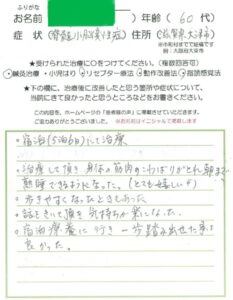 ふりがな
年齢（60代）
症状（脊髄小脳変性症）住所（滋賀県大津市）
※市町村までで結構です
例：大阪府大東市
★受けられた治療に○をつけてください。（複数回答可）
・鍼灸治療 ・小児はり ・リセプター療法 ・動作改善法 ・指談感覚法
★下の欄に、治療後に改善したと思う箇所や症状について、
当前にきて良かったと思うところなどをお書きください。
この内容を、ホームページの「患者様の声」に掲載させていただきます。
ありがとうございました。 ※お名前はイニシャルで掲載します
・宿泊（5泊6日）にて治療
・治療して頂き身体の筋肉のこわばりがとれ朝まで
熟睡できるようになった。（とても嬉しい!）
・歩きやすくなったときもあった
・話をきいて頂き気持ちが楽になった。
・宿泊療養に行き一歩踏み出せた事は
良かった。